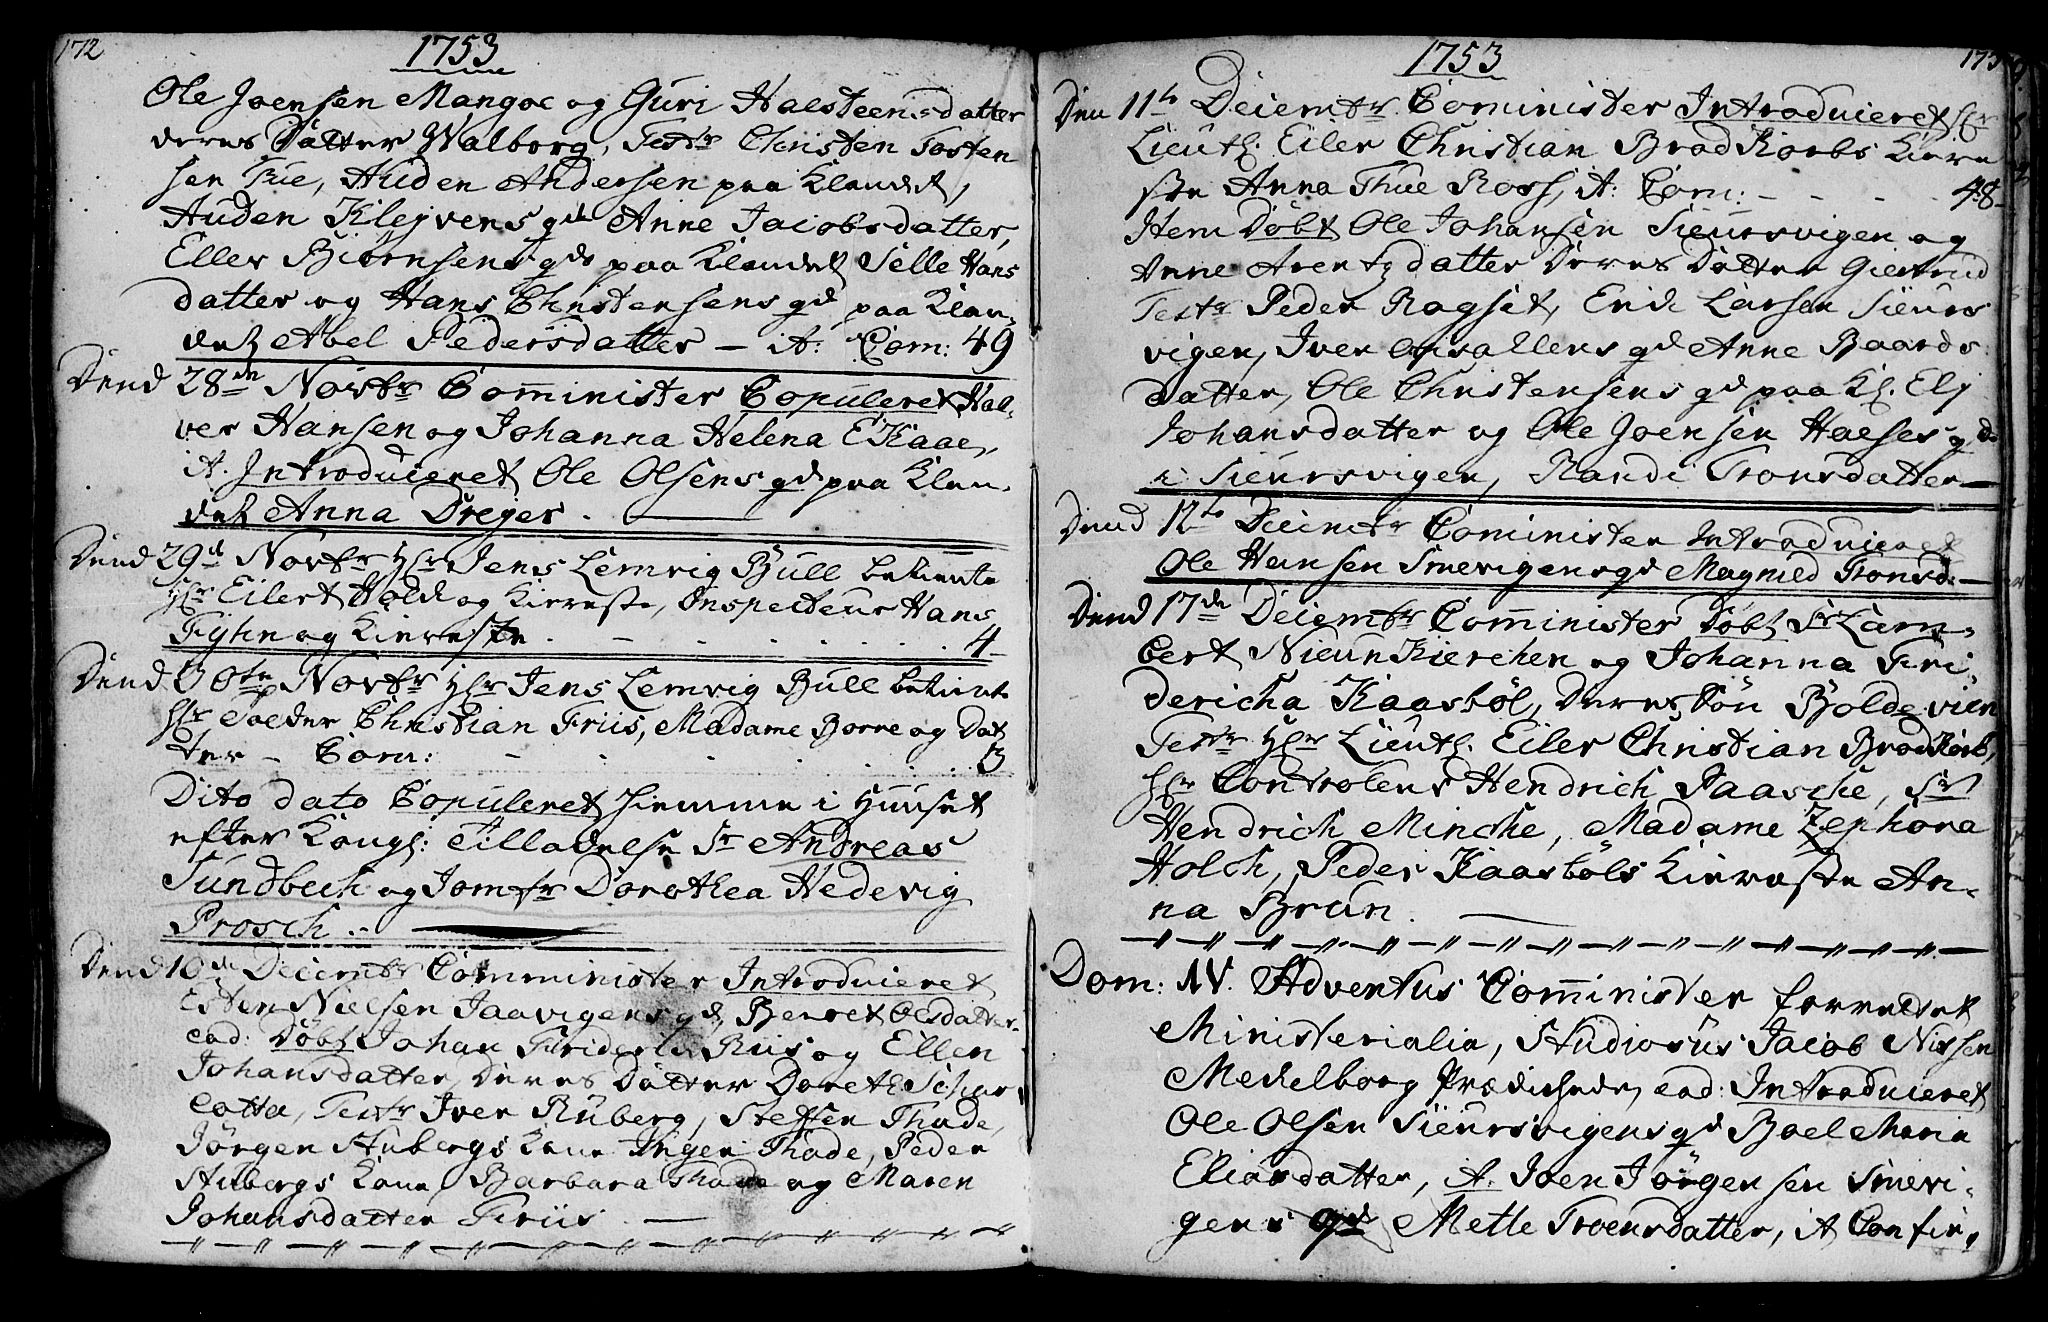 172
1753
Ole Joensen Mangoe og Guri Halsteensdatter
deres Dátter Walborg, Testr Christen Tosten
sen Frie, Auden Andersen paa Klandet,
Auden Klejvens qd Anne Jacobsdatter,
Eller Biörnsens qd paa Klandet Selle Hans
datter og Hans Christensens qd paa Klan,
det Abel Pedersdatter — it: Com: 49
Dend 28de Novbr Cominister Copuleret Hal,
ver Hansen og Johanna Helena E Kaae,
it. Introduceret Ole Olsens qd paa Klan,
det Anna Dreyer. —
Dend 29d Novbr Hr Jens Lemvig Bull betiente
Hr Eilert Hold og Kiereste, Inspecteur Hans
Fyhn og Kiereste . — . . . . . 4
Dend 30te Novbr Hr Jens Lemvig Bull betiente
Hr Peder Christian Friis, Madame Borre og Dat
ter — Com: - . . . . . 3
Dito dato Copuleret hiemme i Huuset
efter Kongl: Tilladelse Sr Andreas
Sundbech og Jomfr Dorothea Hedevig
Prosch .. —
Dend 10de Decembr Comminister Introduceret
Esten Nielsen Taavigens qd, Beret Olsdatter.
ead: Döbt Johan Friderich Riis og Ellen
Johansdatter, deres Dátter Doreth Schar
lotta, Testr Iver Ruberg, Steffen Thode,
Jörgen Stubergs Kone Inger Thode, Peder
Stubergs Kone Barbara Thode og Maren
Johansdatter Friis. —
1753
173
Den 11te Decembr Cominister Introduceret Hr
Lieutl. Eiler Christian Brod Korbs Kiere
ste Anna Thue Ross, it: Com: - - - - 48
Item Döbt Ole Johansen Sieursvigen og
Anne Arentzdatter deres Dátter Giertrud
Testr Peder Ragset, Erich Larsen Sieurs
vigen, Iver Opsallens qd Anne Baards
datter, Ole Christensens qd paa Kl. Elj
Johansdatter og Ole Joensen Halses qd
i Sieursvigen, Randi Tronsdatter —
Dend 12te Decembr Cominister Introduceret
Ole Hansen Smevigens qd Magnild Tronsd. —
Dend 17de Decembr Comminister Döbt Sr Lam,
bert Nieun Kierchen og Johanna Fri
dericha Kaasböl, deres Sön Boldevien
Testr Hr Lieutl. Eiler Christian Brod Korb,
Hr Controleur Hendrich Paasche, Sr
Hendrich Minche, Madame Zephora
Holch, Peder Kaasböls Kiereste An,
na Brun. —
Dom: IV. Adventus Comminister forrettet
Ministerialia, Studiosus Jacob Nissen
Mechelborg Prædichede, ead: Introduceret
Ole Olsen Sieursvigens qd Boel Maria
Eliasdatter, it. Joen Jörgensen Smevi,
gens qd Mette Troensdatter, it Confir,